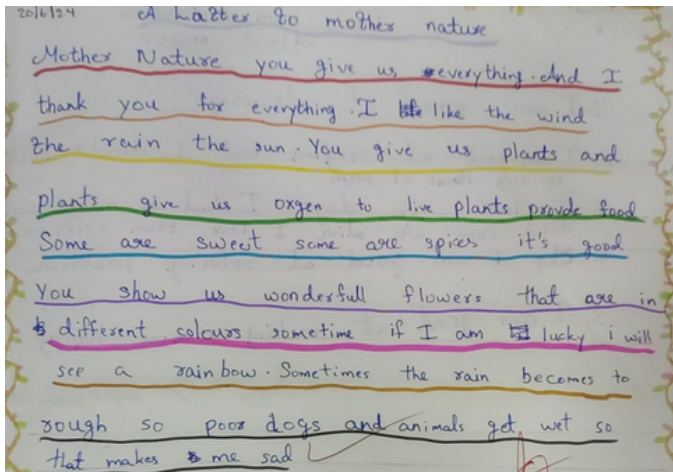 20/6/24 A Latter to mother nature
Mother Nature you give us everything. And I
thank you for everything. I like the wind
the rain the sun. You give us plants and
plants give us oxgen to live plants provde food
Some are sweet some are spices it's good
You show us wonderfull flowers that are in
different colours sometime if I am lucky i will
see a rainbow. Sometimes the rain becomes to
rough so poor dogs and animals get wet so
that makes me sad